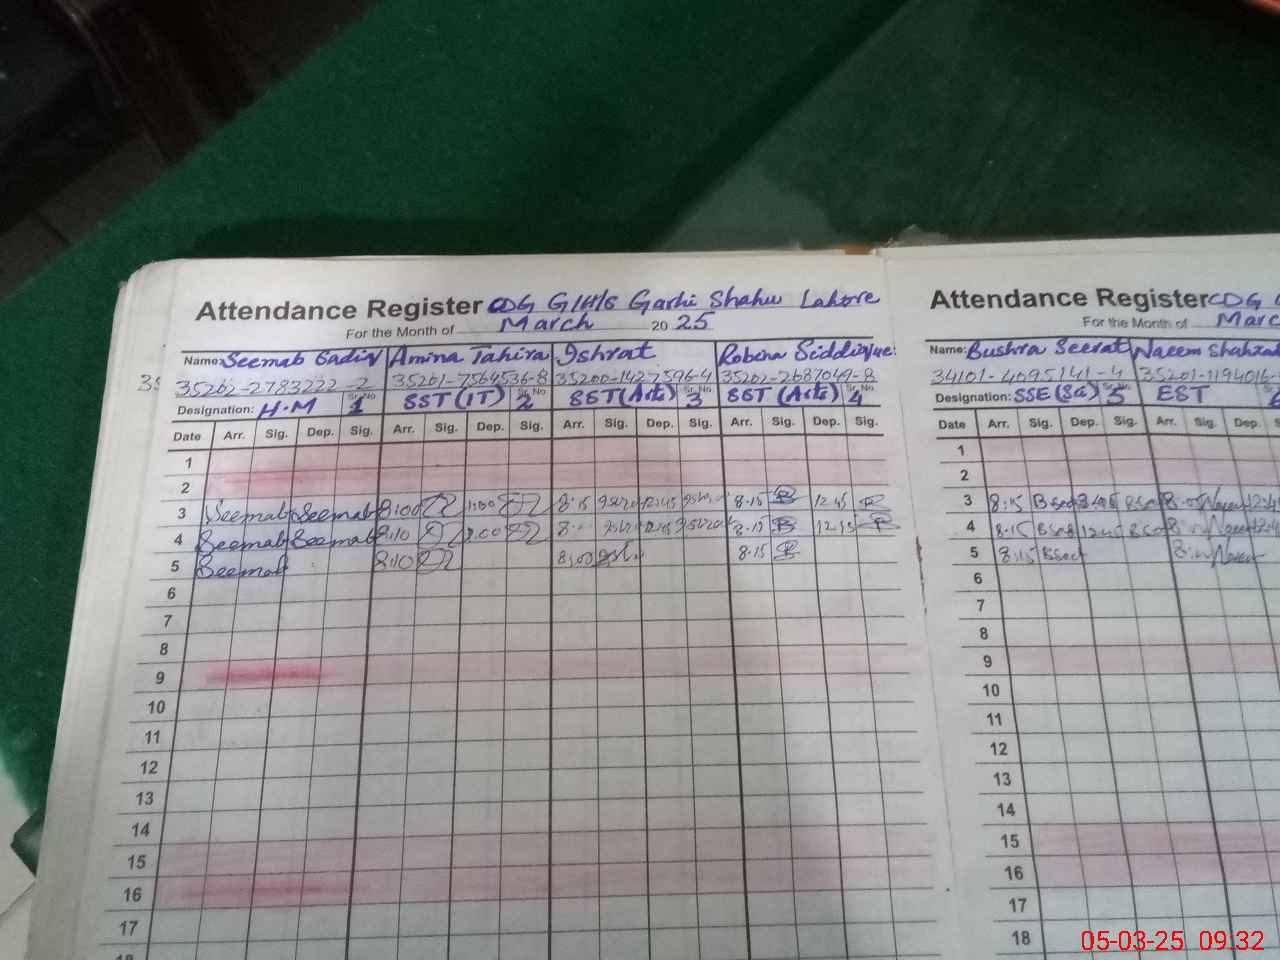 Attendance Register CDG G/H/S Garhi Shahu Lahore
For the Month of March 2025
Name: Seemab Amina Tahira Ishrat Robina
35202-2783222-2 35201-7564536-8 35200-1427596-4 35202-2687049-8
Designation: H.M Sr. No 1 SST (IT) Sr. No 2 SST (Arts) Sr. No 3 SST (Arts) Sr. No 4
Date Arr. Sig. Dep. Sig. Arr. Sig. Dep. Sig. Arr. Sig. Dep. Sig. Arr. Sig. Dep. Sig.
1
2
3 Seemab Seemab 8:00 1:00 8:15 12:45 8.15 12.45
4 Seemab Seemab 8:10 8.15
5 Seemab 8:10 8:00 8.15
6
7
8
9
10
11
12
13
14
15
16
17
18
Attendance Register CDG
For the Month of Marc
Name: Bushra Seerat Naeem Shahzad
34101-4095141-4 35201-1194016-
Designation: SSE (Sc) Sr. No 5 EST
Date Arr. Sig. Dep. Sig. Arr. Sig. Dep.
1
2
3 8:15
4 8:15 12:45
5 8:15
6
7
8
9
10
11
12
13
14
15
16
17
18
05-03-25 09:32